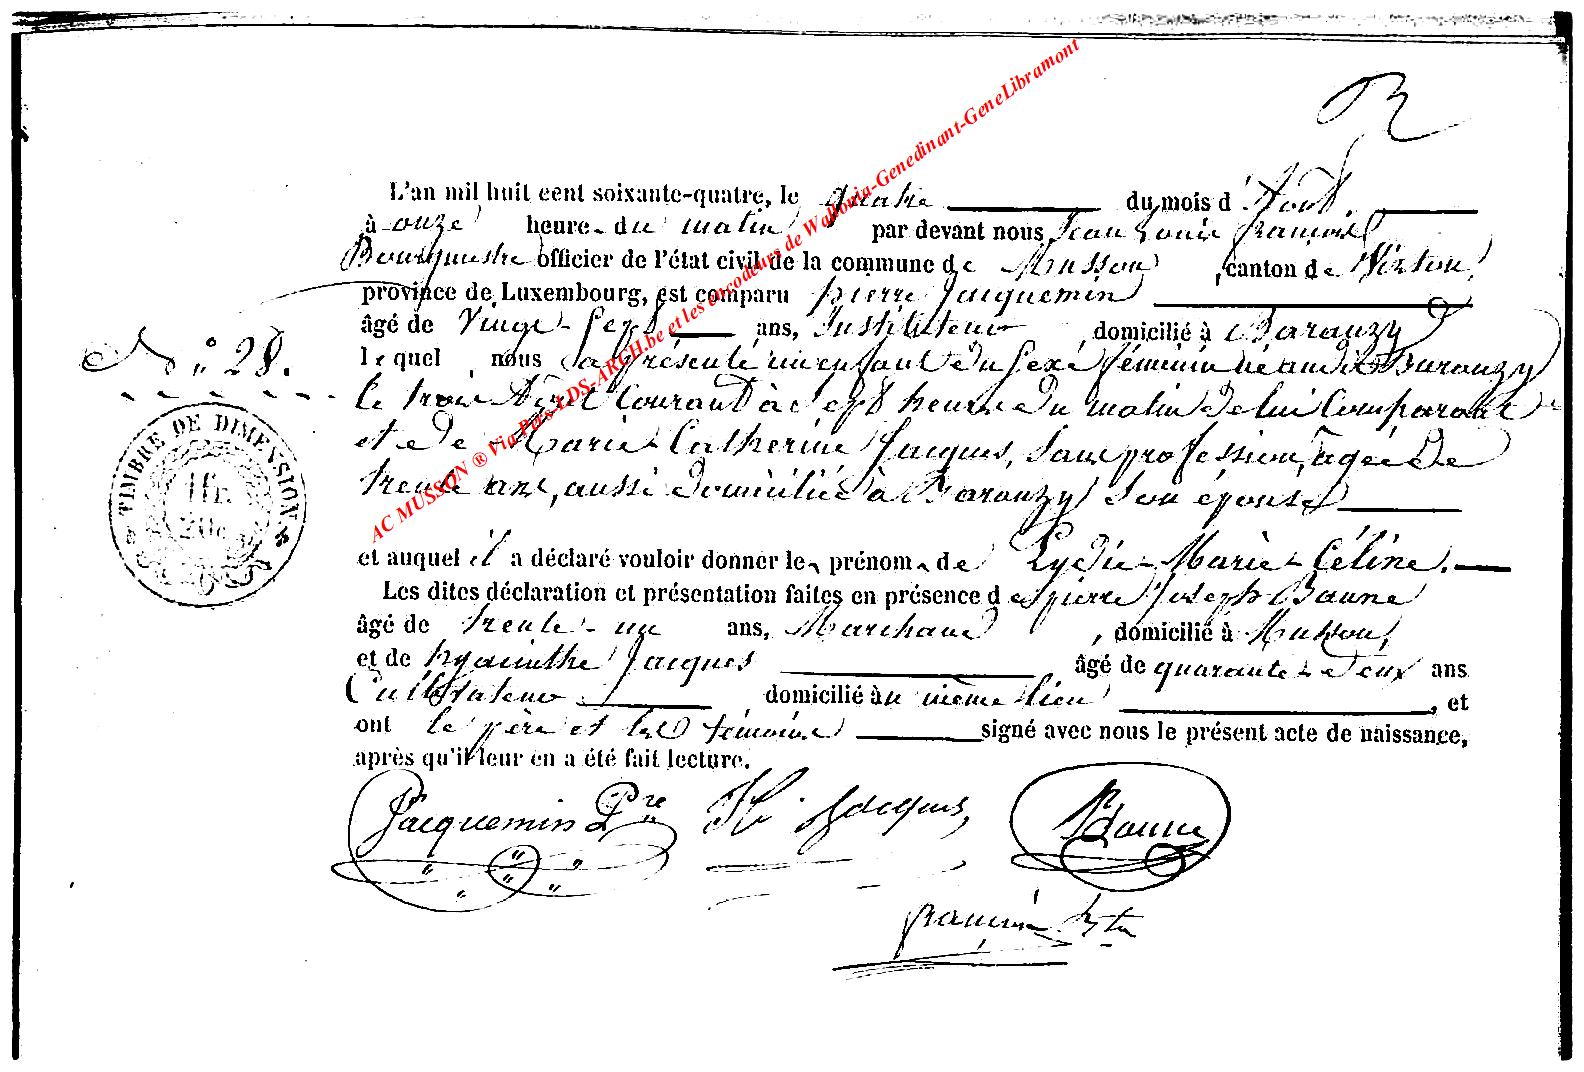 L'an mil huit cent soixante-quatre, le quatre du mois d'Août
à onze heure du matin par devant nous Jean Louis François
Bourgmestre officier de l'état civil de la commune de Musson, canton de Virton,
province de Luxembourg, est comparu pierre Jacquemin
âgé de Vingt-Sept ans, Instituteur, domicilié à Baranzy
N° 28.
lequel nous a présenté un enfant du sexe féminin né audit Baranzy
le trois Août Courant à Sept heures du matin de lui Comparant
et de Marie-Catherine Jacques, Sans profession, agée de
trente ans, aussi domiciliée à Baranzy Son épouse
et auquel il a déclaré vouloir donner le prénom de Lydie-Marie-Céline.
Les dites déclaration et présentation faites en présence de pierre Joseph Baune
âgé de trente-un ans, Marchand, domicilié à Musson,
et de hyacinthe Jacques âgé de quarante-deux ans
Cultivateur domicilié au même lieu, et
ont le père et les témoins signé avec nous le présent acte de naissance,
après qu'il leur en a été fait lecture.
Jacquemin Pre Hi Jacques, Baune
françois
TIMBRE DE DIMENSION
1 fr.
20 c.
AC MUSSON ® Via Pros-LDS-ARCH.be et les encodeurs de Wallonia-Genedinant-GeneLibramont